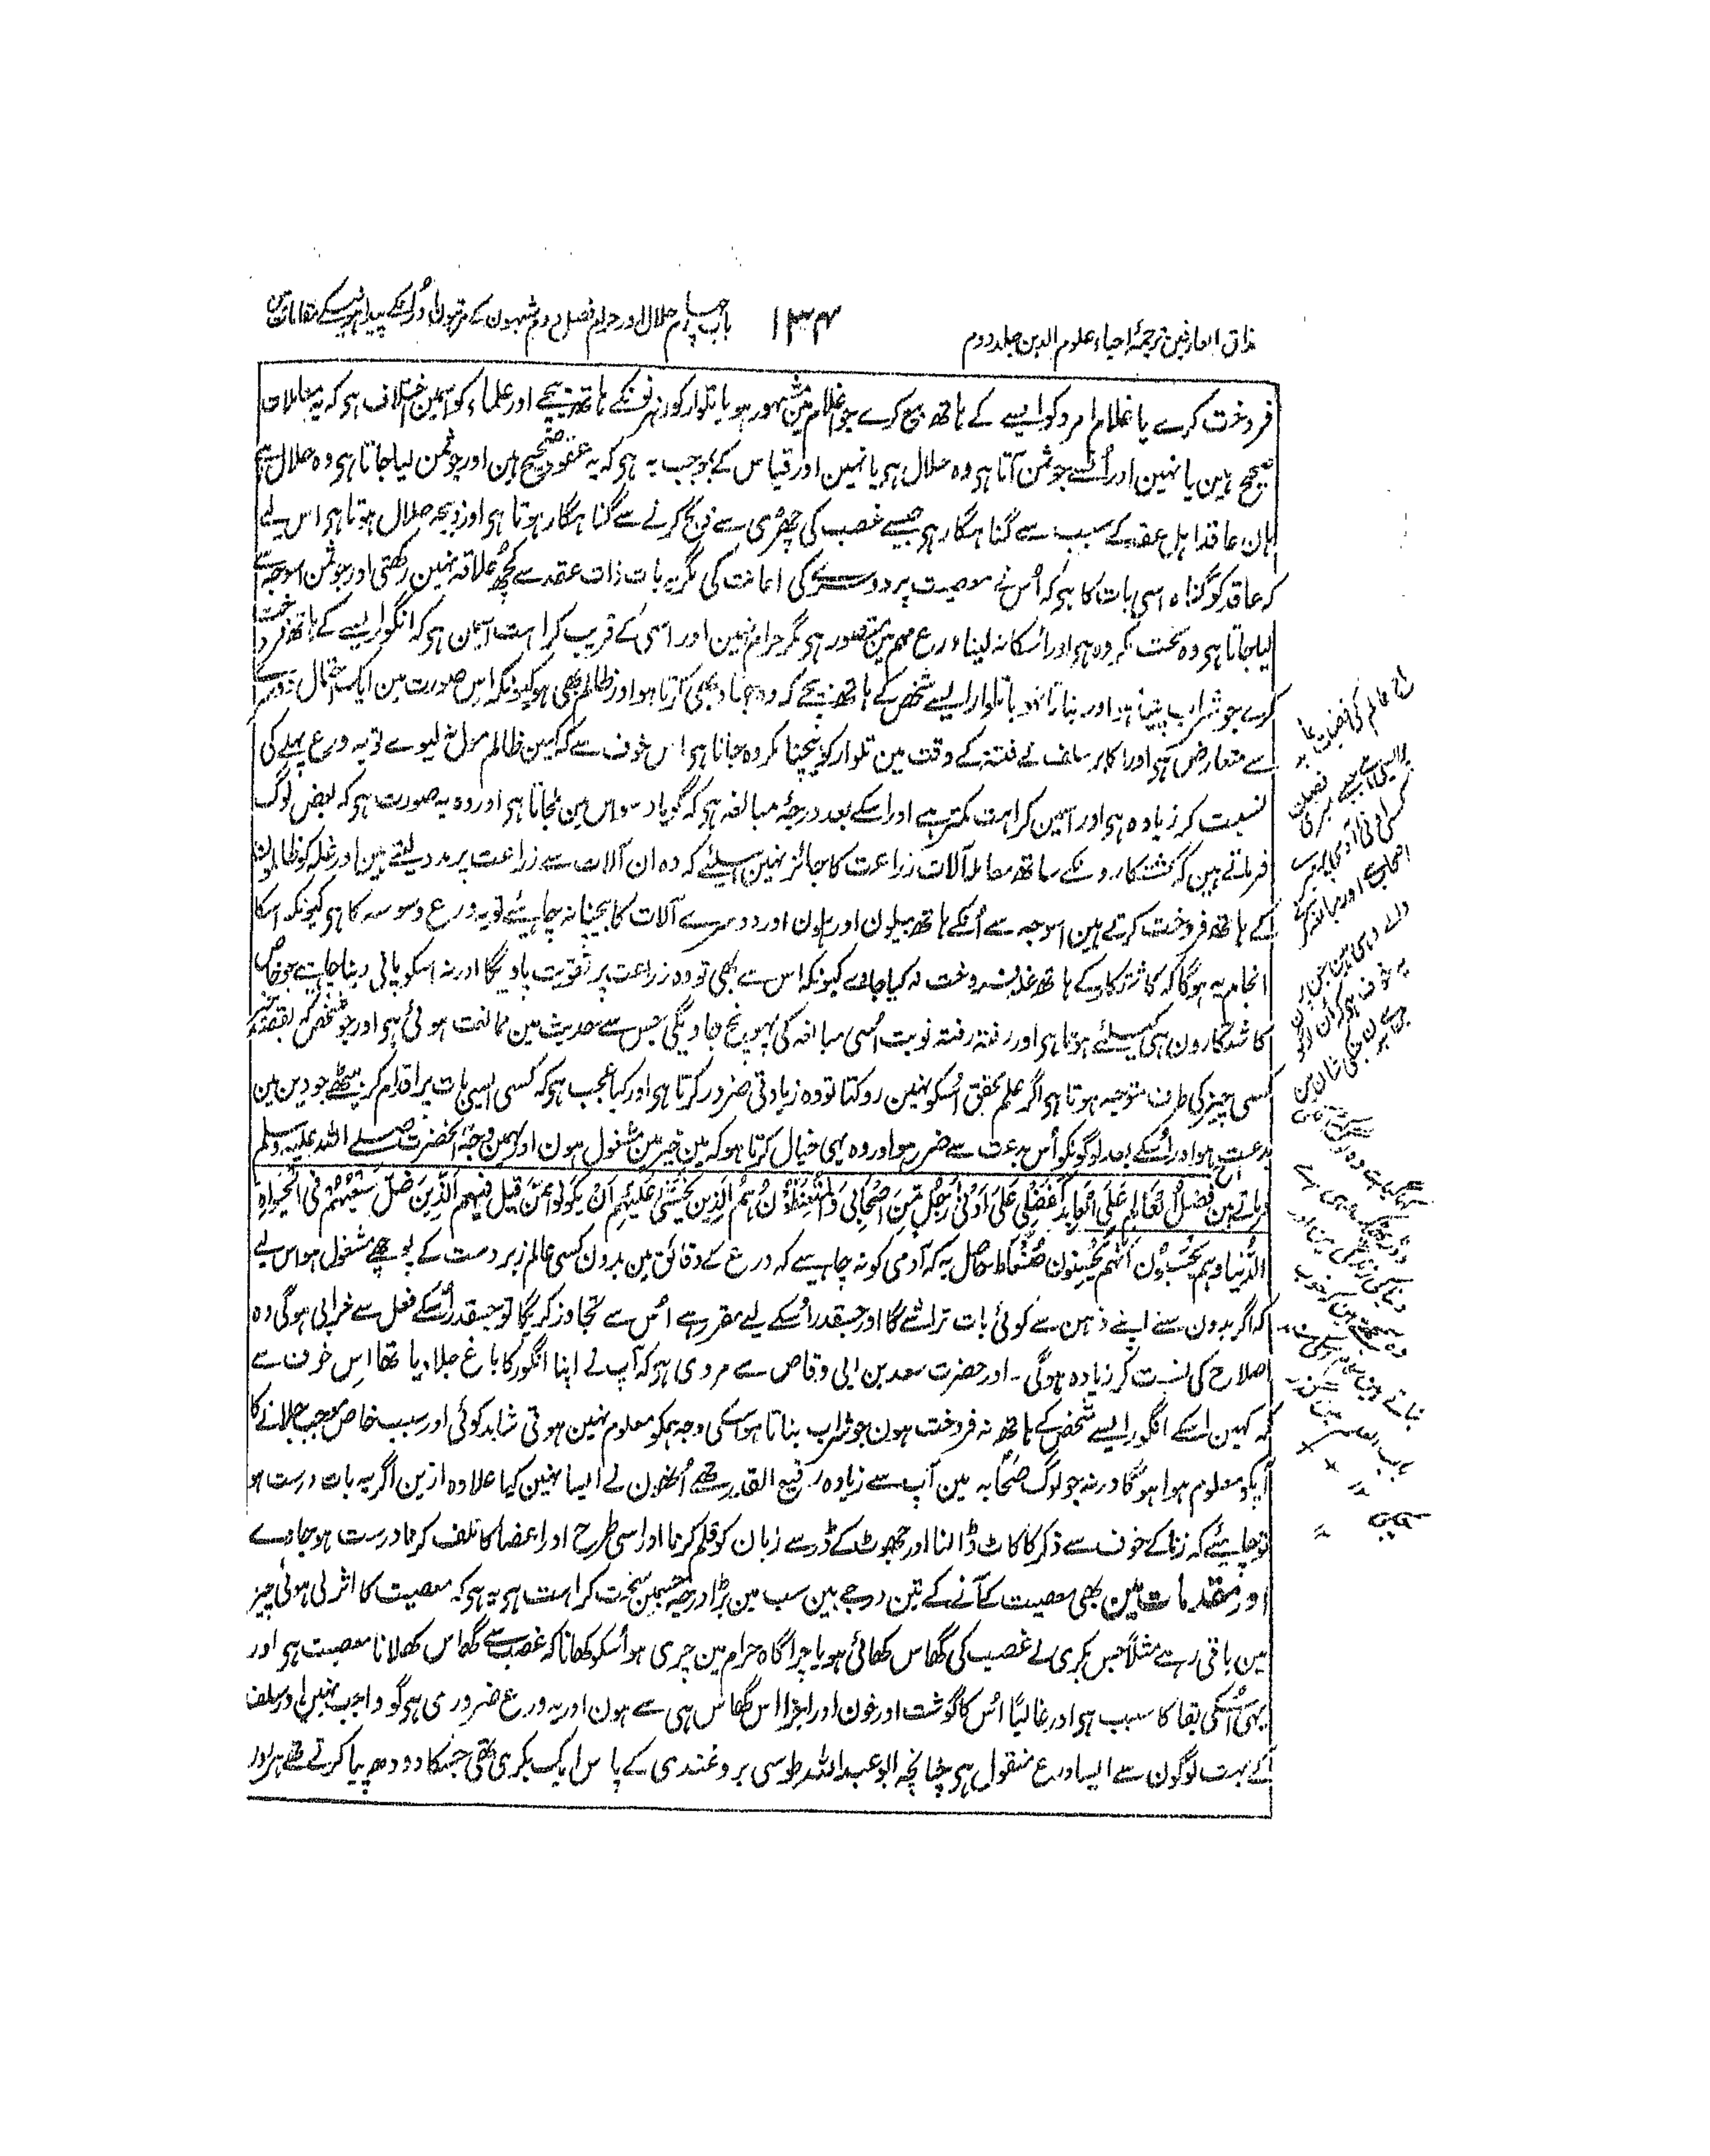 مذاق العارفین ترجمۂ احیاء علوم الدین جلد دوم
۱۳۴
باب چہارم حلال اور حرام فصل دوم شبہون کے مرتبون اور اُنکے پیدا ہونیکے مقامات مین
فروخت کرے یا غلام امرد کو ایسے کے ہاتھ بیع کرے جو اغلام مین مشہور ہو یا تلوار کو رہزنونکے ہاتھ بیچے اور علماء کو اسمین اختلاف ہی کہ یہ معاملات
صحیح ہین یا نہین اور اُنسے جو ثمن آتا ہی وہ حلال ہی یا نہین اور قیاس کے بموجب یہ ہی کہ یہ عقود صحیح ہین اور جو ثمن لیا جاتا ہی وہ حلال ہے
ہان عاقد اہل عقد کے سبب سے گناہگار ہی جیسے غصب کی چھڑی سے ذبح کرنے سے گناہگار ہوتا ہی اور ذبیحہ حلال ہوتا ہی اس لیے
کہ عاقد کو گناہ اسی بات کا ہی کہ اُس نے معصیت پر دوسرے کی اعانت کی مگر یہ بات ذات عقد سے کچھ علاقہ نہین رکھتی اور جو ثمن اسوجہ سے
لیا جاتا ہی وہ سخت مکروہ ہی اور اُسکا نہ لینا ورع مہم مین متصور ہی مگر حرام نہین اور اسی کے قریب کراہت اسمین ہی کہ انگور ایسے کے ہاتھ فروخت
کرے جو شراب پیتا ہو اور بناتا نہو یا تلوار ایسے شخص کے ہاتھ بیچے کہ وہ جہاد بھی کرتا ہو اور ظالم بھی ہو کیونکہ اس صورت مین ایک احتمال دوسرے
سے متعارض ہی اور اکابر سلف نے فتنہ کے وقت مین تلوار کو بیچنا مکروہ جانا ہی اس خوف سے کہ کہین ظالم مول نہ لیوے تو یہ ورع پہلے کی
نسبت کر زیادہ ہی اور اسمین کراہت کمتر ہے اور اسکے بعد درجۂ مبالغہ ہی کہ گویا وسواس مین ملجاتا ہی اور وہ یہ صورت ہی کہ بعض لوگ
فرماتے ہین کہ کاشتکارونکے ساتھ معاملہ آلات زراعت کا جائز نہین اسلیئے کہ وہ ان آلات سے زراعت پر مدد لیتے ہین اور غلہ کو ظالمون
کے ہاتھ فروخت کرتے ہین اسوجہ سے اُنکے ہاتھ بیلون اور ہلون اور دوسرے آلات کا بیچنا نہ چاہیئے تو یہ ورع وسوسہ کا ہی کیونکہ اسکا
انجام یہ ہوگا کہ کاشتکار کے ہاتھ غلہ فروخت نہ کیا جاوے کیونکہ اس سے بھی تو وہ زراعت پر تقویت پاویگا اور نہ اسکو پانی دینا چاہیے جو خاص
کاشتکارون ہی کیلئے ہوتا ہی اور رفتہ رفتہ نوبت اُسی مبالغہ کی پہونچ جاویگی جس سے حدیث مین ممانعت ہوئی ہی اور جو شخص کہ بقصد خیر
کسی چیز کی طرف متوجہ ہوتا ہی اگر علم محقق اُسکو نہین روکتا تو وہ زیادتی ضرور کرتا ہی اور کیا عجب ہی کہ کسی ایسی بات پر اقدام کر بیٹھے جو دین مین
بدعت ہو اور اُسکے بعد لوگونکو اُس بدعت سے ضرر ہو اور وہ یہی خیال کرتا ہو کہ مین خیر مین مشغول ہون اور اسی وجہ سے آنحضرت صلے اللہ علیہ وسلم
فرماتے ہین فَضْلُ الْعَالِمِ عَلَى الْعَابِدِ كَفَضْلِي عَلَى أَدْنَى رَجُلٍ مِّنْ أَصْحَابِي وَالْمُتَنَطِّعُوْنَ هُمُ الَّذِيْنَ يُخْشٰى عَلَيْهِمْ اَنْ يَكُونُوا مِمَّنْ قِيْلَ فِيْهِمْ الَّذِيْنَ ضَلَّ سَعْيُهُمْ فِي الْحَيٰوةِ
الدُّنْيَا وَهُمْ يَحْسَبُوْنَ اَنَّهُمْ يُحْسِنُوْنَ صُنْعًا حاصل یہ کہ آدمی کو نہ چاہیے کہ ورع کے دقائق مین بدون کسی عالم زبردست کے پوچھے مشغول ہو اس لیے
کہ اگر بدون سنے اپنے ذہن سے کوئی بات تراشے گا اور جسقدر اُسکے لیے مقرر ہے اُس سے تجاوز کریگا تو جسقدر اُسکے فعل سے خرابی ہوگی وہ
اصلاح کی نسبت کر زیادہ ہوگی ۔ اور حضرت سعد بن ابی وقاص سے مروی ہی کہ آپ نے اپنا انگور کا باغ جلا دیا تھا اس خوف سے
کہ کہین اسکے انگور ایسے شخص کے ہاتھ نہ فروخت ہون جو شراب بناتا ہو اسکی وجہ ہمکو معلوم نہین ہوتی شاید کوئی اور سبب خاص موجب جلانے کا
آپکو معلوم ہوا ہوگا ورنہ جو لوگ صحابہ مین آپ سے زیادہ رفیع القدر تھے اُنھون نے ایسا نہین کیا علاوہ ازین اگر یہ بات درست ہو
تو چاہیئے کہ زنا کے خوف سے ذکر کا کاٹ ڈالنا اور جھوٹ کے ڈر سے زبان کو قلم کرنا اور اسی طرح اور اعضا کا تلف کرنا درست ہو جاوے
اور مقدمات مین بھی معصیت کے آنے کے تین درجے ہین سب مین بڑا درجہ جسمین سخت کراہت ہی یہ ہی کہ معصیت کا اثر لی ہوئی چیز
مین باقی رہے مثلاً جس بکری نے غصب کی گھاس کھائی ہو یا چراگاہ حرام مین چری ہو اُسکو کھانا کہ غصب سے گھاس کھلانا معصیت ہی اور
یہی اُسکی بقا کا سبب ہی اور غالباً اُس کا گوشت اور خون اور اجزا اس گھاس ہی سے ہون اور یہ ورع ضروری ہی گو واجب نہین اور سلف
کے بہت لوگون سے ایسا ورع منقول ہی چنانچہ ابو عبداللہ طوسی بروغندی کے پاس ایک بکری تھی جسکا دودھ پیا کرتے تھے ہر روز